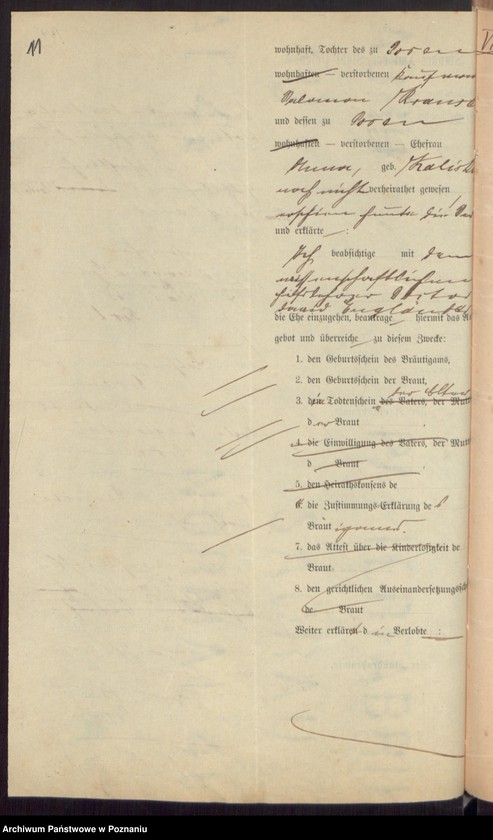 11
wohnhaft, Tochter des zu Posen
wohnhaften — verstorbenen Kaufmann
Salomon
und dessen zu Posen
wohnhaften — verstorbenen — Ehefrau
geb.
noch nicht verheirathet gewesen
erschien heute die
und erklärte :
Ich beabsichtige mit dem
wissenschaftlichen
Hilfslehrer Doctor
David Englän
die Ehe einzugehen, beantrage hiermit das A
gebot und überreiche zu diesem Zwecke:
1. den Geburtsschein des Bräutigams,
2. den Geburtsschein der Braut,
der Eltern
3. die Todtenschein des Vaters, der Mutt
d er Braut
4. die Einwilligung des Vaters, der Mutt
d Braut
5. den Heirathskonsens de
6. die Zustimmungs-Erklärung de s
Bräut igams.
7. das Attest über die Kinderlosigkeit de
Braut
8. den gerichtlichen Auseinandersetzungssch
de Braut
Weiter erklären d ie Verlobte :
Archiwum Państwowe w Poznaniu